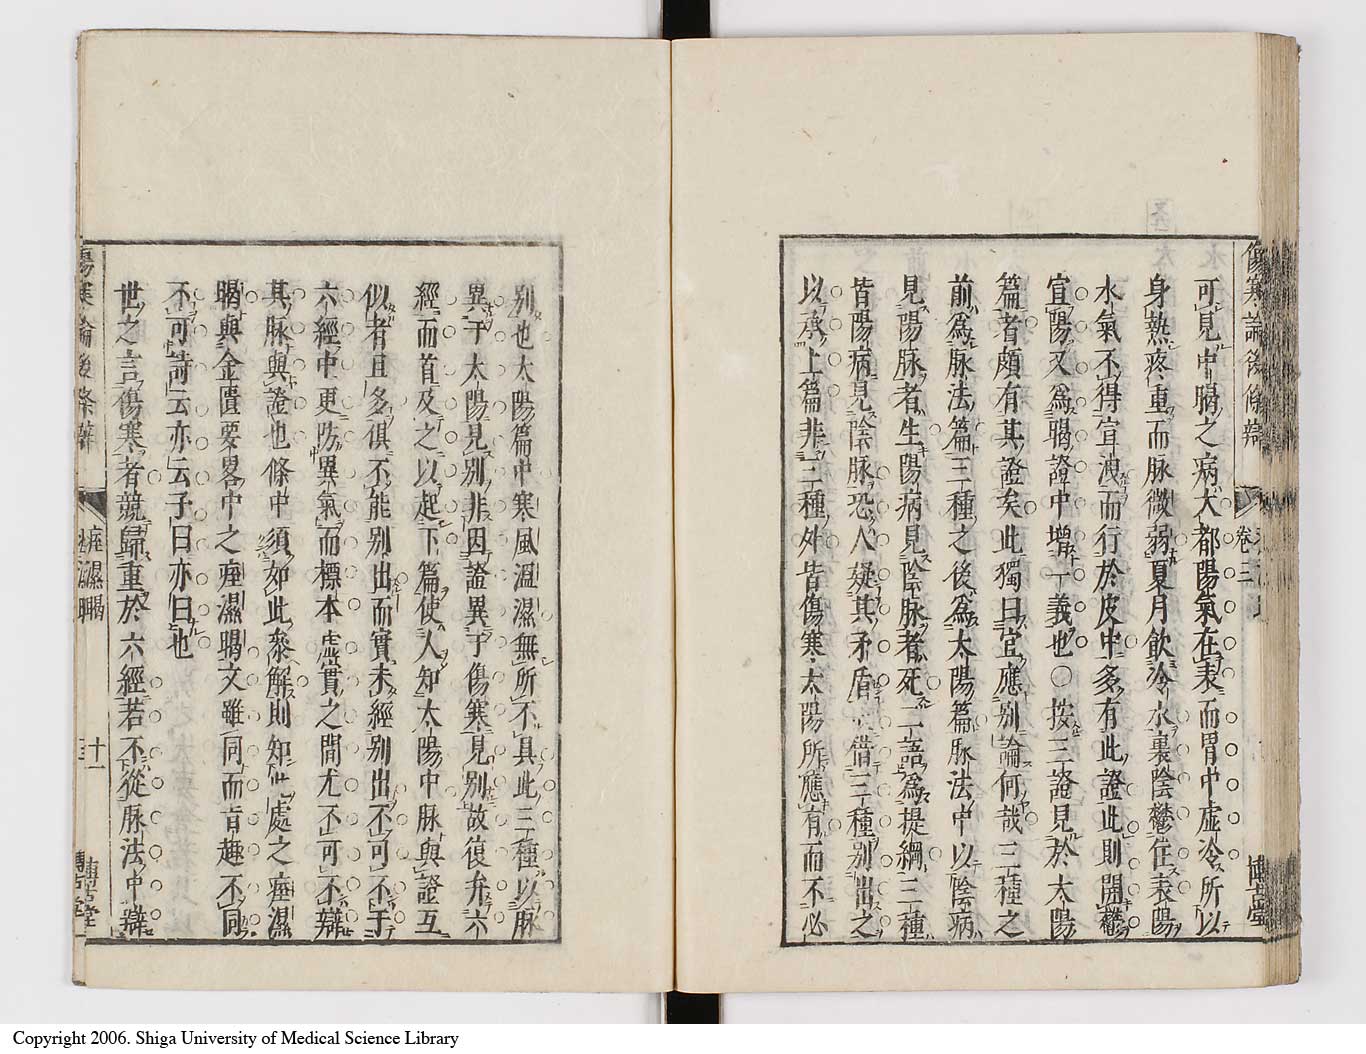 傷寒論後條辯
卷三
博古堂
可見中暍之病大都陽氣在表而胃中虛冷所以
身熱疼重而脉微弱夏月飲冷水裏陰鬱住表陽
水氣不得宣洩而行於皮中多有此證此則開鬱
宣陽又爲暍證中增一義也○按三證見於太陽
篇者頗有其證矣此獨曰宜應別論何哉三種之
前爲脉法篇三種之後爲太陽篇脉法中以陰病
見陽脉者生陽病見陰脉者死二語爲提綱三種
皆陽病見陰脉恐人疑其矛盾 借三種別出之
以承上篇非三種外皆傷寒太陽所應有而不必
別也太陽篇中寒風溫濕無所不具此三種以脉
異于太陽見別非因證異于傷寒見別故復弁六
經而首及之以起下篇使人知太陽中脉與證互
似者且多俱不能別出而實未經別出不可不于
六經中更防異氣而標本虛實之間尤不可不辯
其脉與證也條中須如此參解則知此處之痙濕
暍與金匱要畧中之痙濕暍文雖同而旨趣不同
不可謂云亦云子曰亦曰也
世之言傷寒者競歸重於六經若不從脉法中辯
傷寒論後條辯
痙濕暍
十一
博古堂
Copyright 2006. Shiga University of Medical Science Library